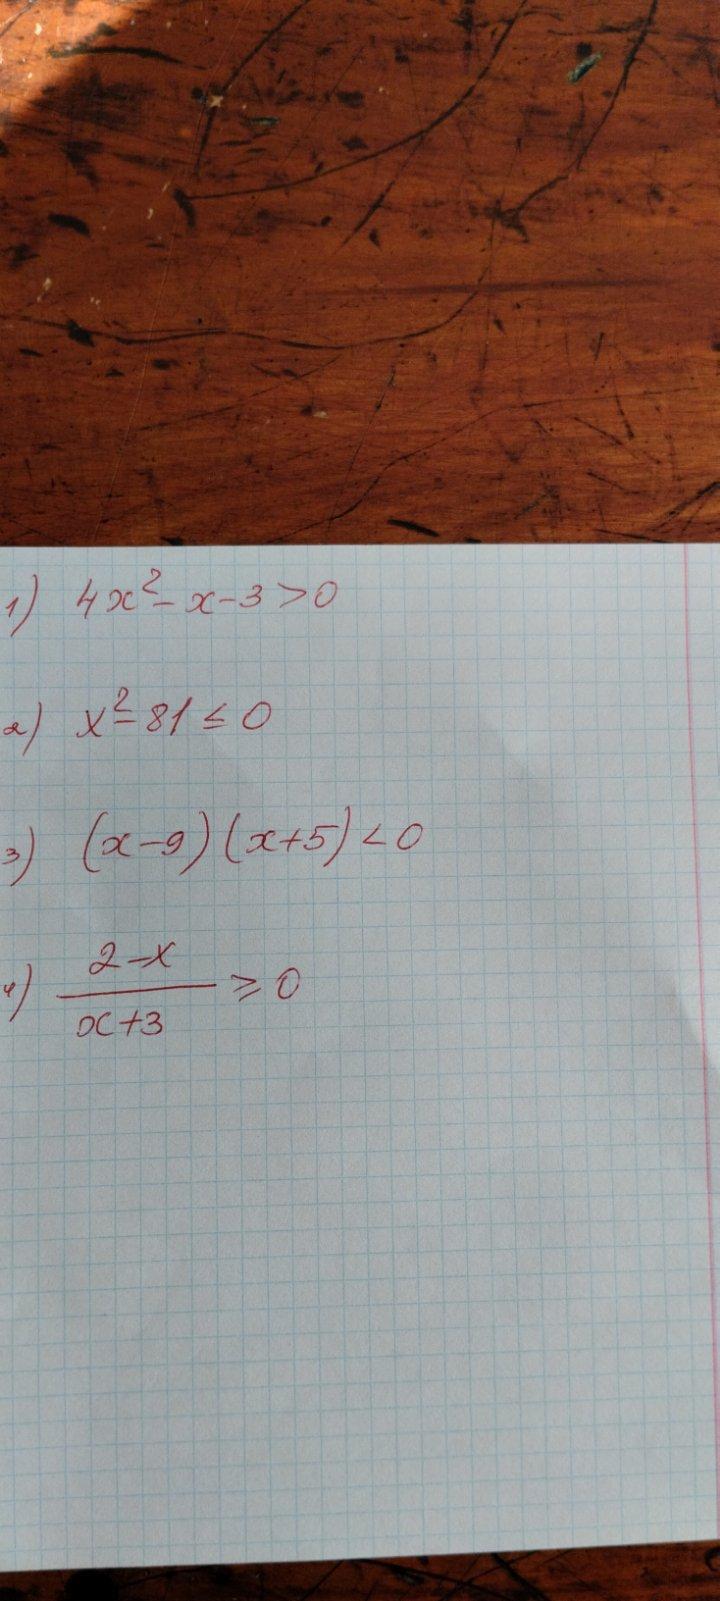 1) 4x² - x - 3 > 0
2) x² - 81 ≤ 0
3) (x-9)(x+5) < 0
4) (2-x)/(x+3) ≥ 0